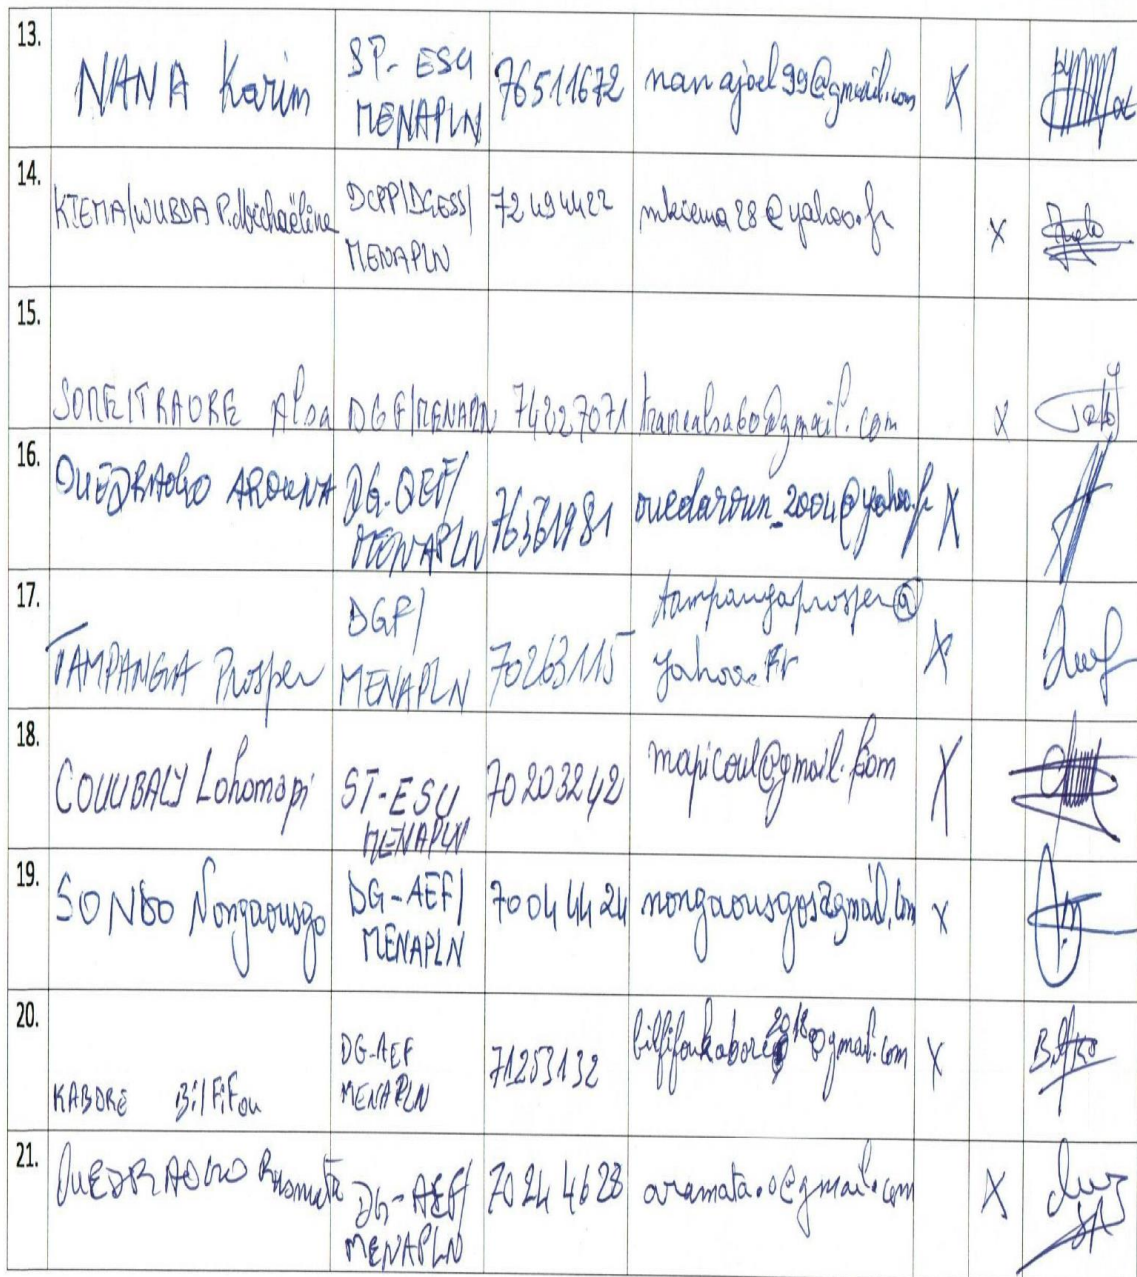 13. NANA Karim SP-ESU MENAPLN 76511672 nanajoel99@gmail.com X
14. KIEMA/WUBDA P. Michaëline DCPP/DGESS/ MENAPLN 72494422 mkiema28@yahoo.fr X
15. SOME/TRAORE Alsa DGF/MENAPLN 74227071 traorealsa60@gmail.com X
16. OUEDRAOGO AROUNA MENAPLN 76361981 ouedaroun_2004@yahoo.fr X
17. TAMPANGA Prosper MENAPLN 70263115 tampangaprosper@ yahoo.Fr X
18. COULIBALY Lohomapi ST-ESU MENAPLN 70203242 mapicoul@gmail.com X
19. SONDO Nongaousgo DG-AEF/ MENAPLN 70044424 nongaousgos@gmail.com X
20. KABORE BilFiFou DG-AEF MENAPLN 71253132 bilfifoukabore2018@gmail.com X
21. OUEDRAOGO Ramata DG-AEF/ MENAPLN 70244628 aramata.o@gmail.com X